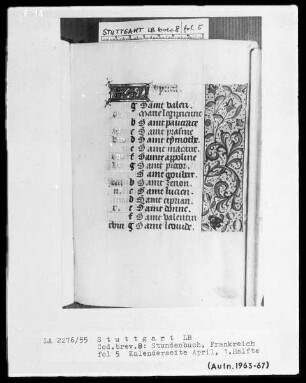 STUTTGART LB brev. 8 fol 5
KL Apuril
g Saint valeri
Marie legipcienne
b Saint pancrace
c Saint
d Saint thymothee
e Saint macaire
f Saint apoline
g Saint
Saint
b Saint zenon
c Saint lucien
d Saint ciprian
e Saint donne
f Saint valentin
xviii g Saint leonide
LA 2276/55 Stuttgart LB
Cod.brev.8: Stundenbuch, Frankreich
fol 5 Kalenderseite April, 1.Hälfte
(Aufn.1963-67)